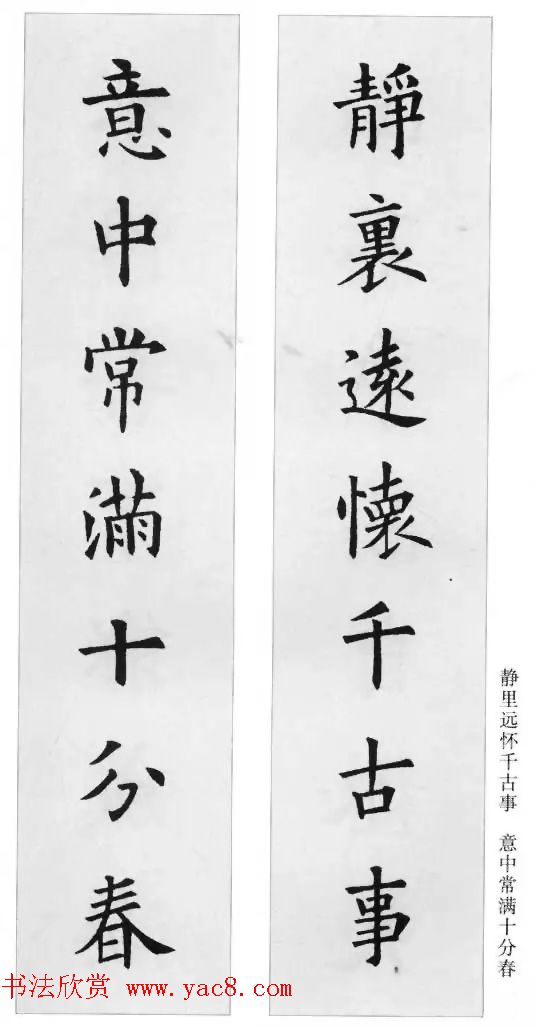 靜裏遠懷千古事
意中常滿十分春
静里远怀千古事 意中常满十分春
书法欣赏 www.yac8.com